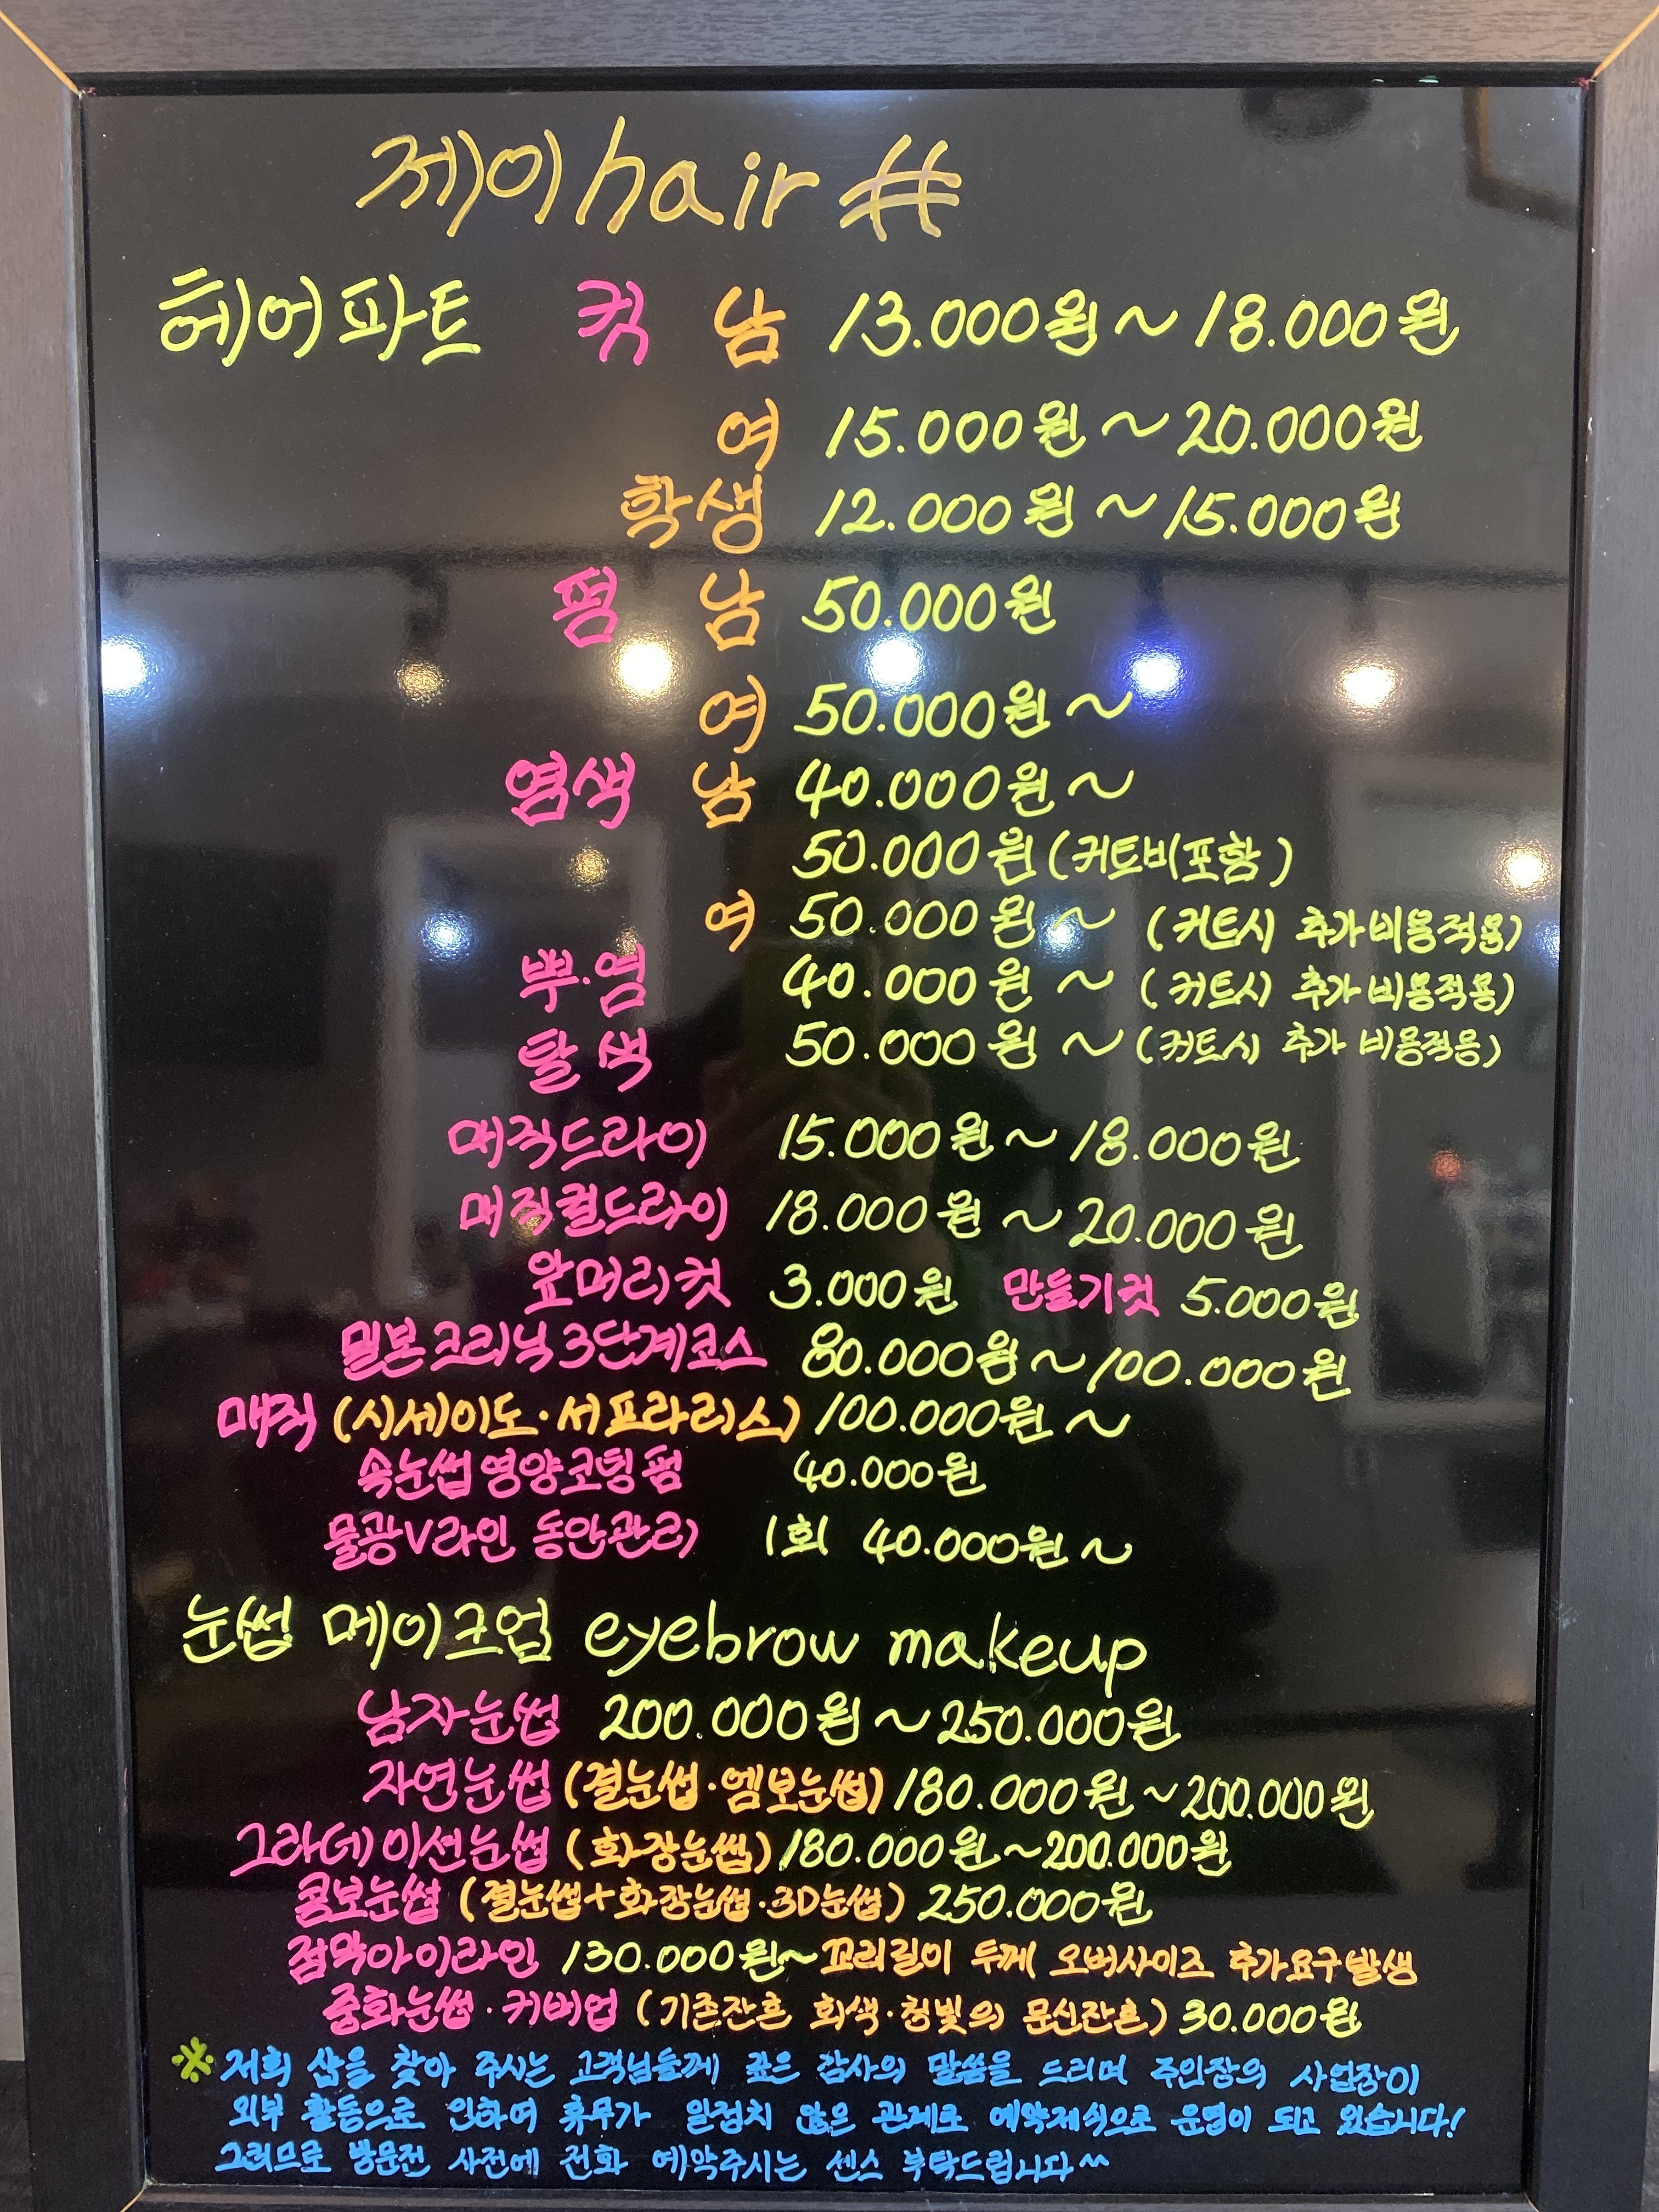 제이hair #
헤어파트 컷 남 13.000원~18.000원
여 15.000원~20.000원
학생 12.000원~15.000원
펌 남 50.000원
여 50.000원~
염색 남 40.000원~
50.000원(커트비포함)
여 50.000원~ (커트시 추가비용적용)
뿌.염 40.000원~ (커트시 추가비용적용)
탈색 50.000원~(커트시 추가비용적용)
매직드라이 15.000원~18.000원
매직컬드라이 18.000원~20.000원
앞머리컷 3.000원 만들기컷 5.000원
밀본크리닉3단계코스 80.000원~100.000원
매직(시세이도·서프라리스)100.000원~
속눈썹영양코팅펌 40.000원
물광V라인 동안관리 1회 40.000원~
눈썹 메이크업 eyebrow makeup
남자눈썹 200.000원~250.000원
자연눈썹(결눈썹·엠보눈썹)180.000원~200.000원
그라데이션눈썹(화장눈썹)180.000원~200.000원
콤보눈썹(결눈썹+화장눈썹·3D눈썹) 250.000원
점막아이라인 130.000원~꼬리길이 두께 오버사이즈 추가요구발생
중화눈썹·커버업(기존잔흔 회색·청빛의 문신잔흔)30.000원
※저희 샵을 찾아 주시는 고객님들께 깊은 감사의 말씀을 드리며 주인장의 사업장이
외부 활동으로 인하여 휴무가 일정치 않은 관계로 예약제식으로 운영이 되고 있습니다!
그러므로 방문전 사전에 전화 예약주시는 센스 부탁드립니다^^